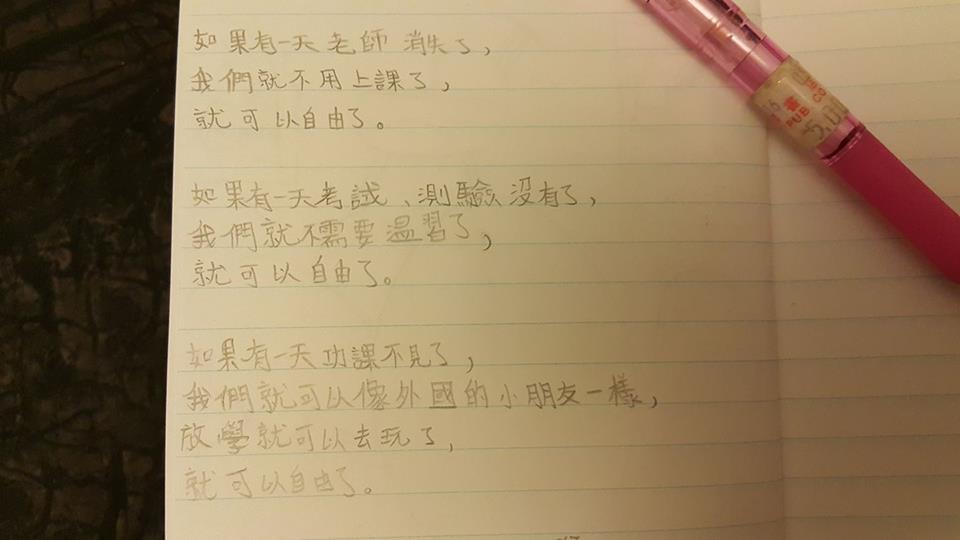 如果有一天老師消失了，
我們就不用上課了，
就可以自由了。
如果有一天考試、測驗沒有了，
我們就不需要温習了，
就可以自由了。
如果有一天功課不見了，
我們就可以像外國的小朋友一樣，
放學就可以去玩了，
就可以自由了。
PUB
5.00